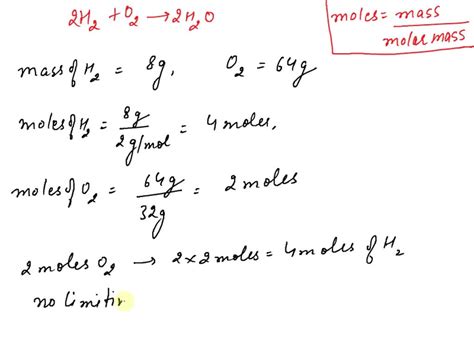 2H₂ + O₂ → 2H₂O
moles = mass / molar mass
mass of H₂ = 8g, O₂ = 64g
moles of H₂ = 8g / 2g/mol = 4 moles,
moles of O₂ = 64g / 32g = 2 moles
2 moles O₂ → 2×2 moles = 4 moles of H₂
no limitin